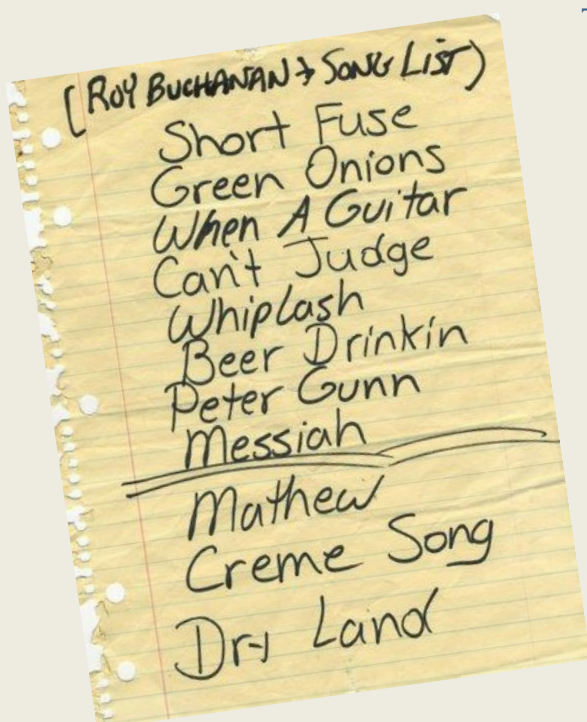 (ROY BUCHANAN → SONG LIST)
Short Fuse
Green Onions
When A Guitar
Can't Judge
Whiplash
Beer Drinkin
Peter Gunn
Messiah
Mathew
Creme Song
Dry Land